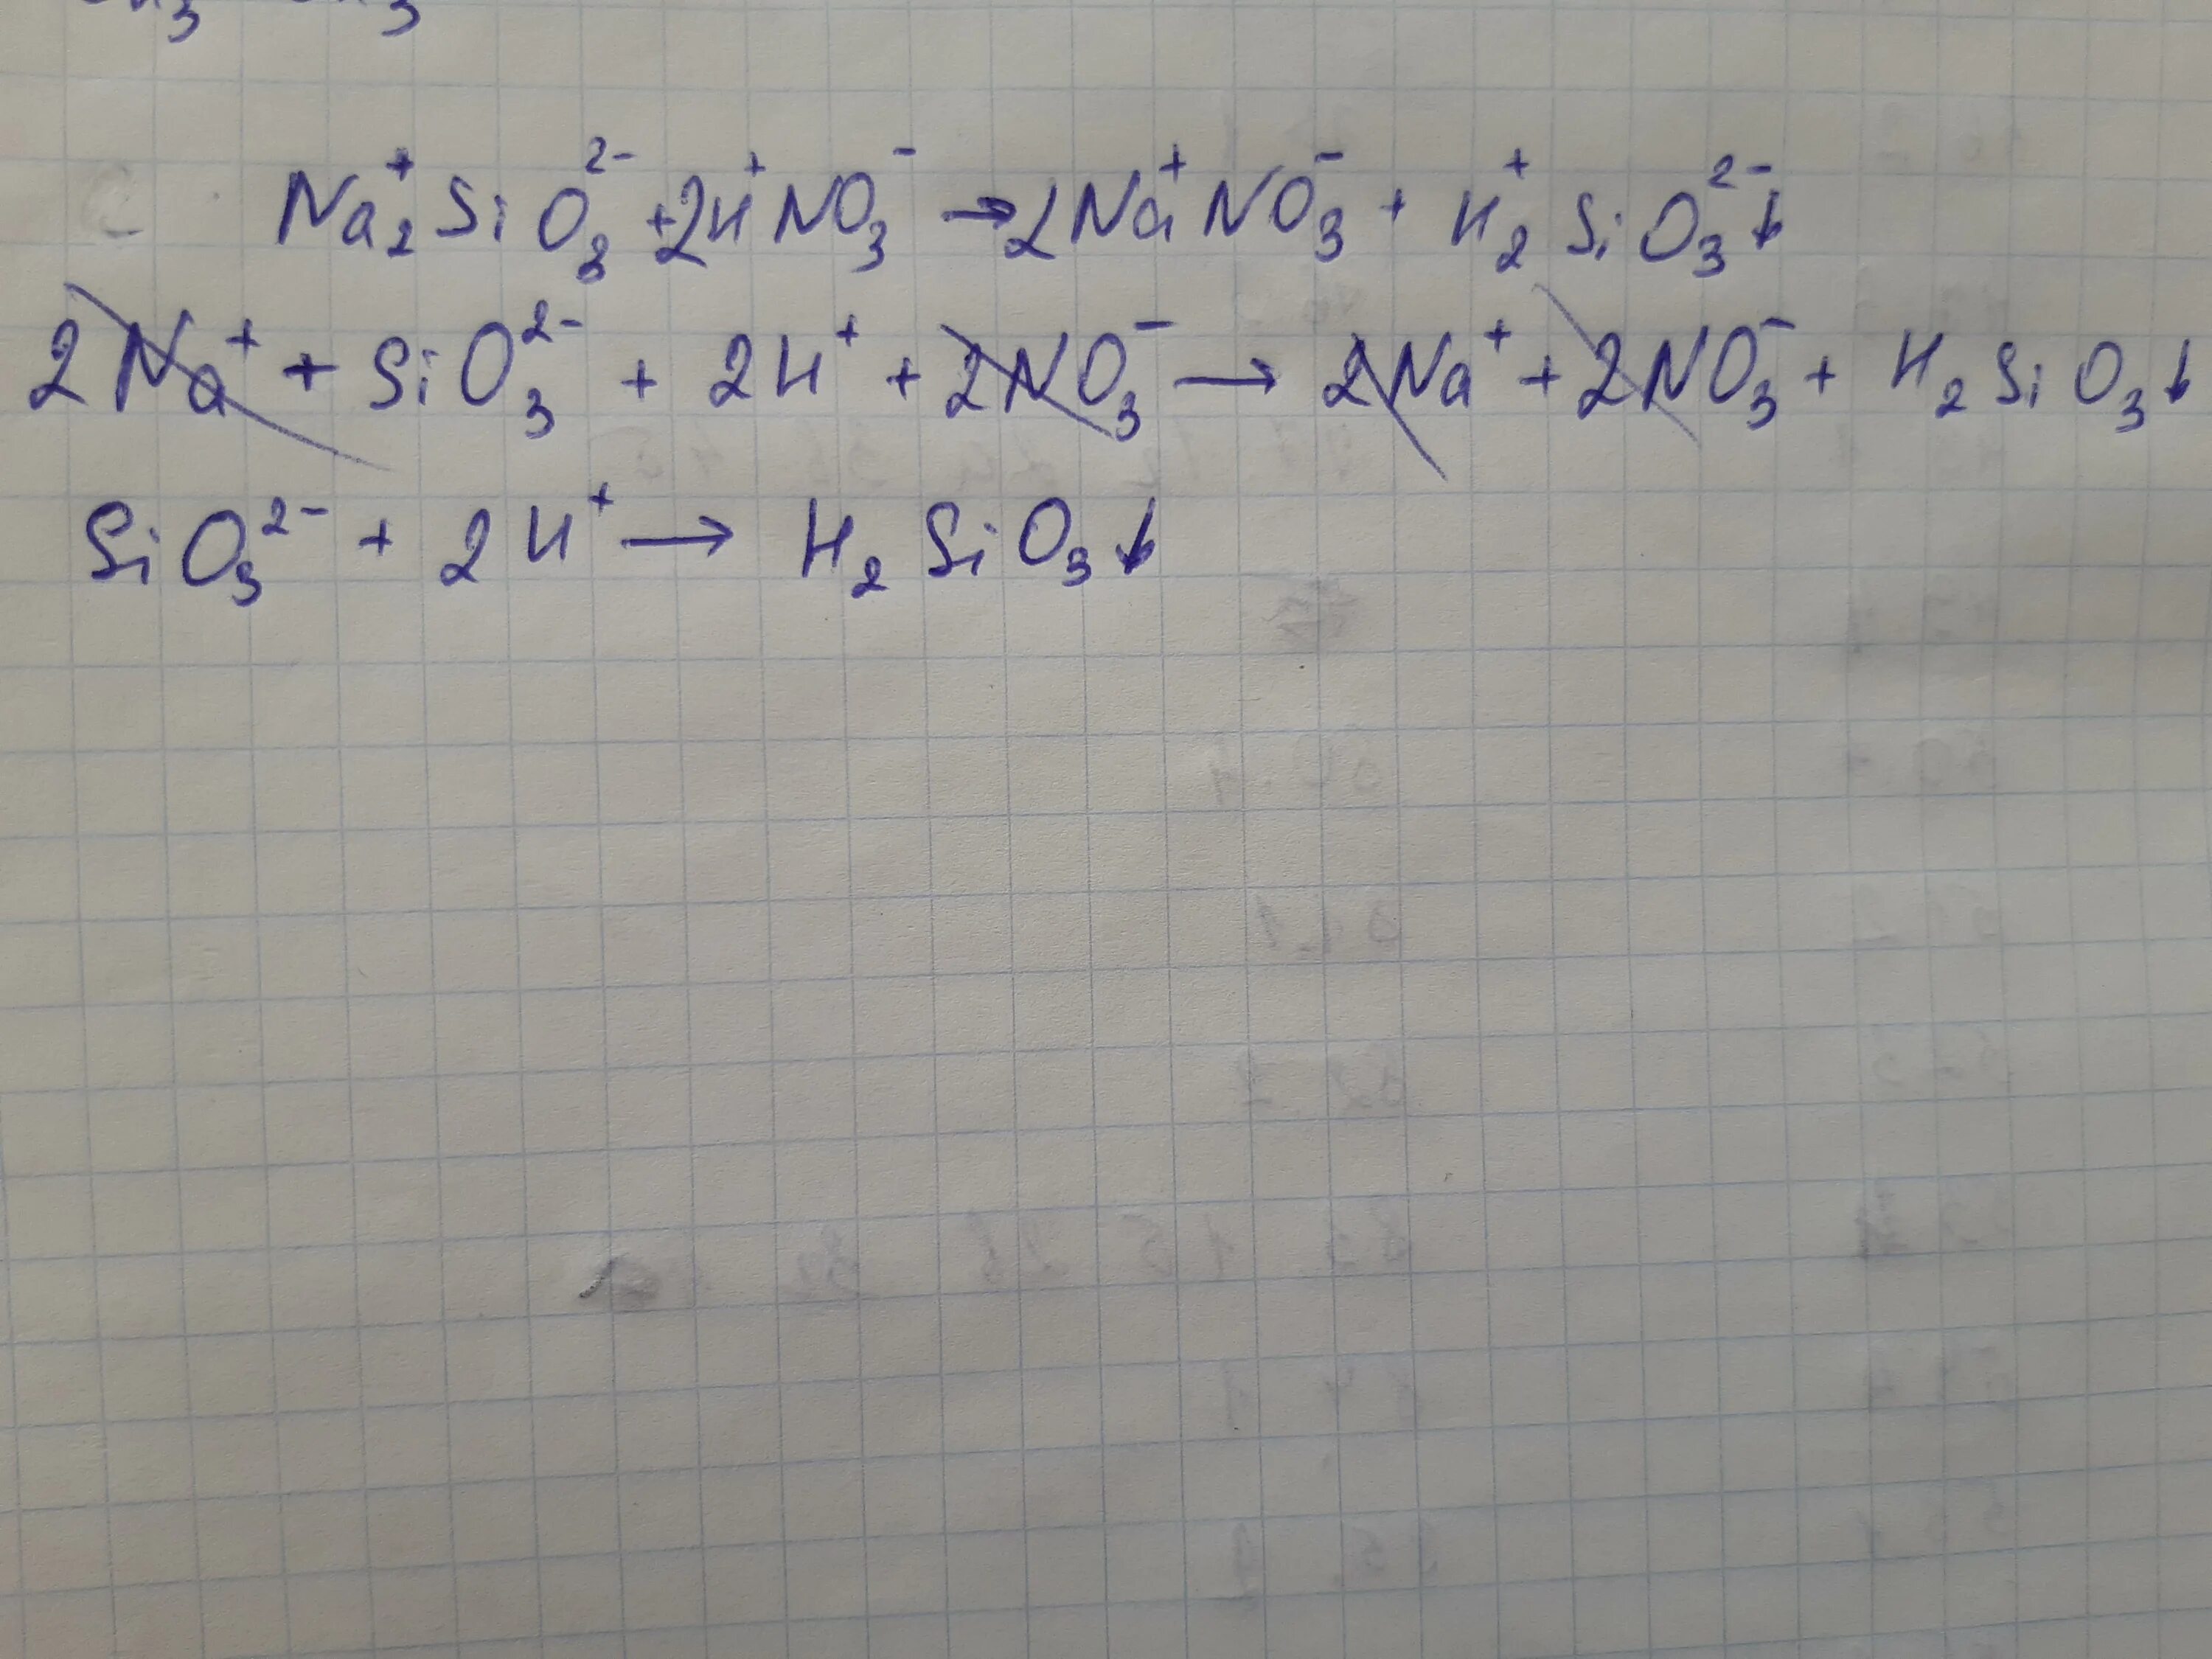 Na₂⁺SiO₃²⁻ + 2H⁺NO₃⁻ → 2Na⁺NO₃⁻ + H₂⁺SiO₃²⁻↓
2Na⁺ + SiO₃²⁻ + 2H⁺ + 2NO₃⁻ → 2Na⁺ + 2NO₃⁻ + H₂SiO₃↓
SiO₃²⁻ + 2H⁺ → H₂SiO₃↓